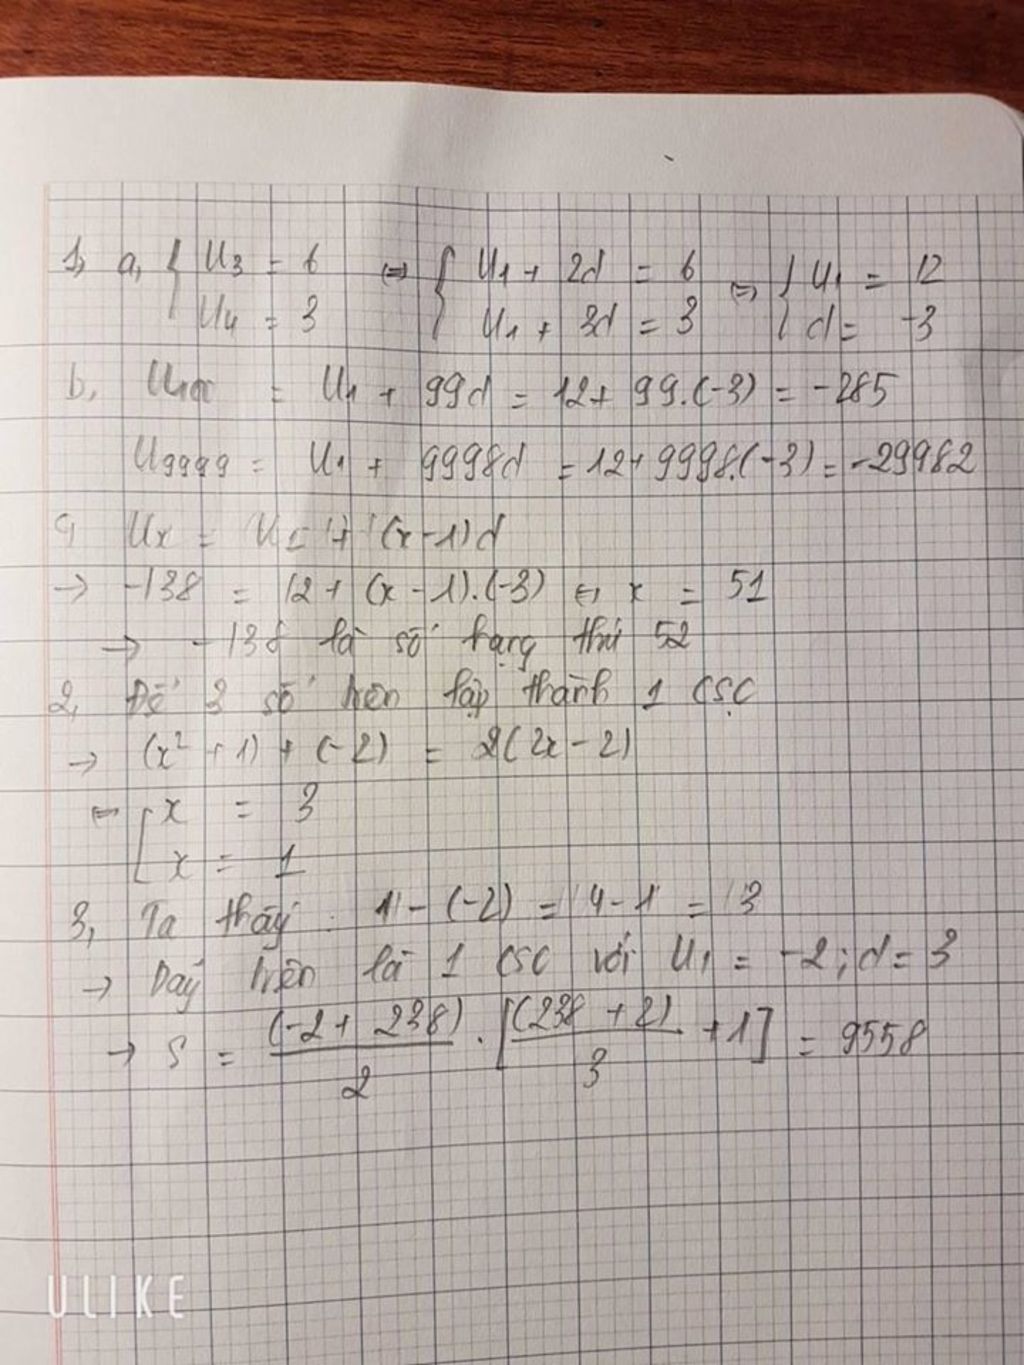 1, a, { U3 = 6 ⇔ { U1 + 2d = 6 ⇔ { U1 = 12
U4 = 3 U1 + 3d = 3 d = -3
b, U100 = U1 + 99d = 12 + 99.(-3) = -285
U9999 = U1 + 9998d = 12 + 9998.(-3) = -29982
c, Ux = U1 + (x-1)d
→ -138 = 12 + (x - 1).(-3) ⇔ x = 51
→ -138 là số hạng thứ 52
2, Để 3 số trên lập thành 1 CSC
→ (x² + 1) + (-2) = 2(2x - 2)
⇔ [ x = 3
x = 1
3, Ta thấy: 1 - (-2) = 4 - 1 = 3
→ Dãy trên là 1 CSC với U1 = -2; d = 3
→ S = (-2 + 238)/2 . [(238 + 2)/3 + 1] = 9558
ULIKE